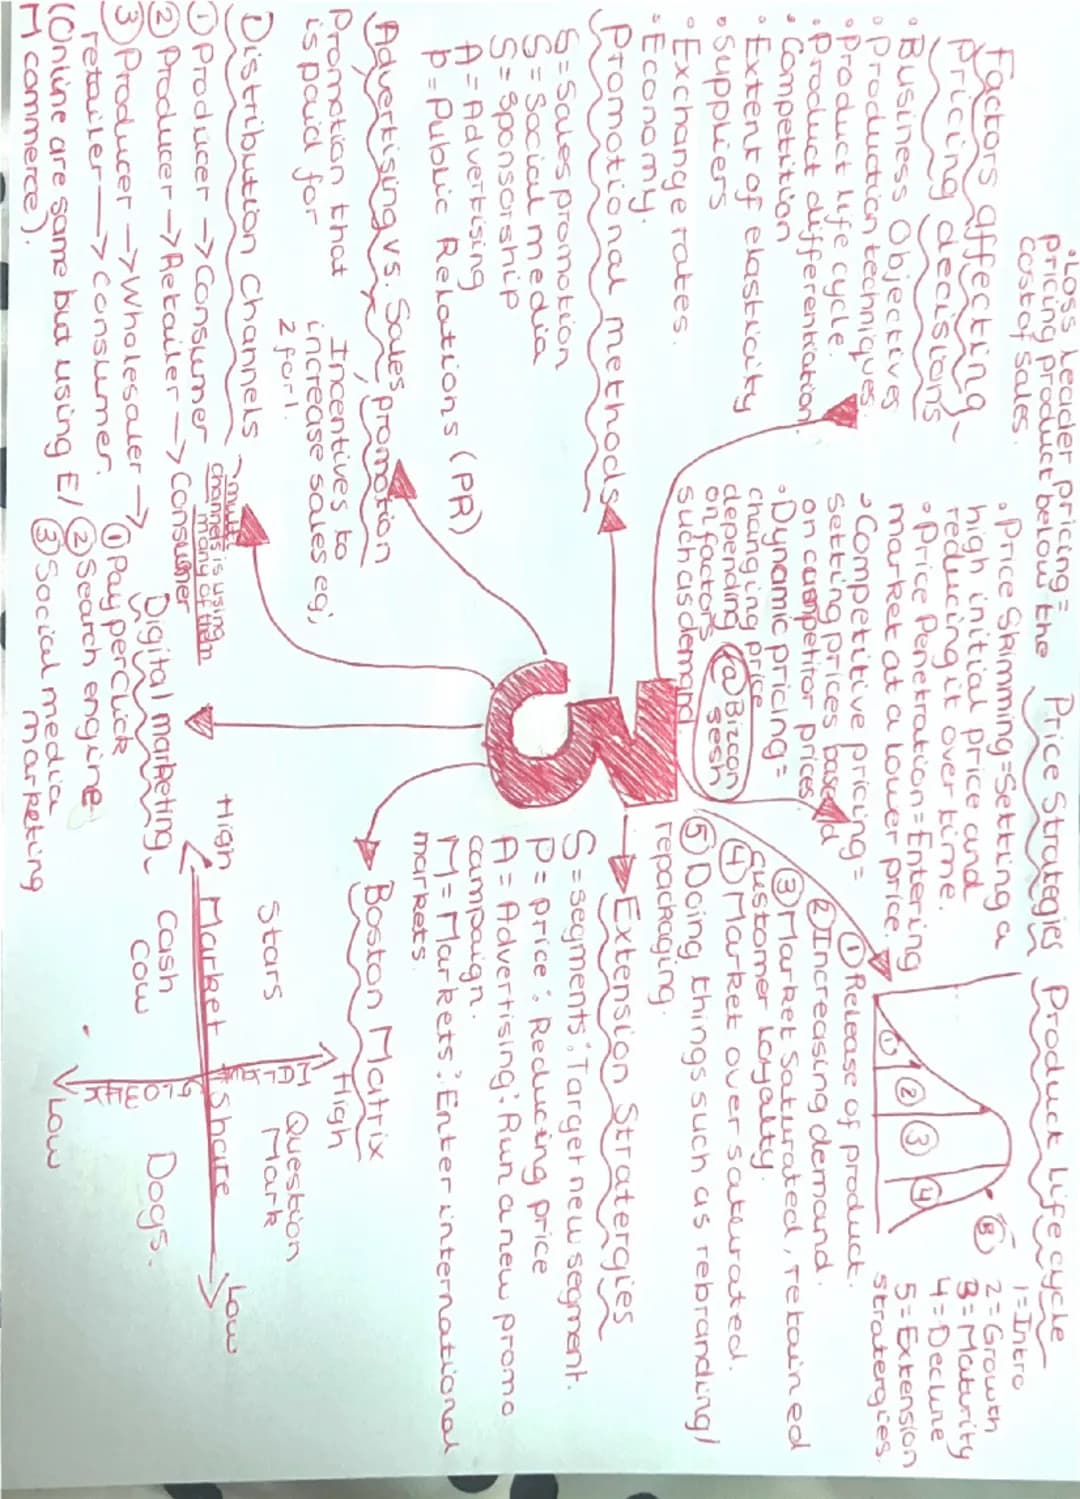 • Loss leader pricing =
pricing product below the
cost of sales.
Factors affecting
pricing decisions
• Business Objectives
• Production techniques.
• Product life cycle.
• Product differentiation
• Competition
• Extent of elasticity
• Suppliers
• Exchange rates.
• Economy.
Price Strategies
• Price Skimming = Setting a
high initial price and
reducing it over time.
• Price Penetration = Entering
market at a lower price.
• Competitive pricing =
setting prices based
on competitor prices
• Dynamic pricing =
changing price
depending
on factors
such as demand
Product Life cycle
1 = Intro
2 = Growth
3 = Maturity
4 = Decline
5 = Extension
stratergies.
① ② ③ ④ ⑤
① Release of product.
② Increasing demand.
③ Market saturated, retained
customer loyalty.
④ Market over saturated.
⑤ Doing things such as rebranding/
repackaging.
@Bizcon
sesh
3.
Promotional methods
S = Sales promotion
S = Social media
S = Sponsorship
A = Advertising
P = Public Relations (PR)
Extension Stratergies
S = segments: Target new segment.
P = price: Reducing price
A = Advertising: Run a new promo
campaign.
M = Markets: Enter international
markets.
Advertising vs. Sales promotion
Promotion that
is paid for
Incentives to
increase sales eg;
2 for 1.
Distribution Channels
① Producer → Consumer
② Producer → Retailer → Consumer
③ Producer → Wholesaler →
retailer → Consumer.
(Online are same but using E/
M commerce).
multi
channels is using
many of them
Digital marketing
① Pay per click
② Search engine
③ Social media
marketing
Boston Matrix
High
Market Share
Low
High
Low
Stars
Question
Mark
Cash
Cow
Dogs.